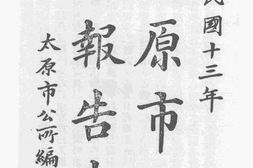 民國十三年
原市
報告
太原市公所編